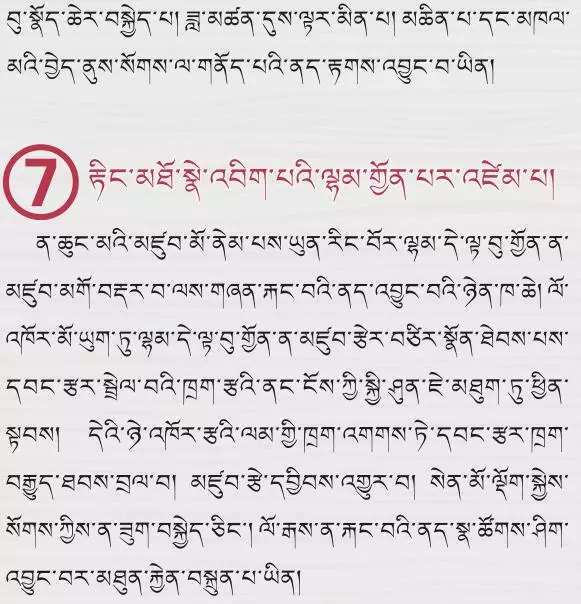 བུ་སྣོད་ཆེར་བསྐྱེད་པ། ཟླ་མཚན་དུས་ལྟར་མིན་པ། མཆིན་པ་དང་མཁལ་
མའི་བྱེད་ནུས་སོགས་ལ་གནོད་པའི་ནད་རྟགས་འབྱུང་བ་ཡིན།
7 རྟིང་མཐོ་སྣེ་འབིག་པའི་ལྷམ་གྱོན་པར་འཛེམ་པ།
ན་ཆུང་མའི་མཛུབ་མོ་ནེམ་པས་ཡུན་རིང་བོར་ལྷམ་དེ་ལྟ་བུ་གྱོན་ན་
མཛུབ་མགོ་བརྡར་བ་ལས་གཞན་རྐང་བའི་ནད་འབྱུང་བའི་ཉེན་ཁ་ཆེ། ལོ་
འཁོར་མོ་ཡུག་ཏུ་ལྷམ་དེ་ལྟ་བུ་གྱོན་ན་མཛུབ་རྩེར་བཙིར་སྣོན་ཐེབས་པས་
དབང་རྩར་སྦྲེལ་བའི་ཁྲག་རྩའི་ནང་ངོས་ཀྱི་སྐྱི་ཤུན་ཇེ་མཐུག་ཏུ་ཕྱིན་
སྟབས། དེའི་ཉེ་འཁོར་རྩའི་ལམ་གྱི་ཁྲག་འགགས་ཏེ་དབང་རྩར་ཁྲག་
བརྒྱུད་ཐབས་བྲལ་བ། མཛུབ་རྩེ་དབྱིབས་འགྱུར་བ། སེན་མོ་ལྡོག་སྐྱེས་
སོགས་ཀྱིས་ན་ཟུག་བསྐྱེད་ཅིང་། ལོ་རྒས་ན་རྐང་བའི་ནད་སྣ་ཚོགས་ཤིག་
འབྱུང་བར་མཐུན་རྐྱེན་བསྐྲུན་པ་ཡིན།